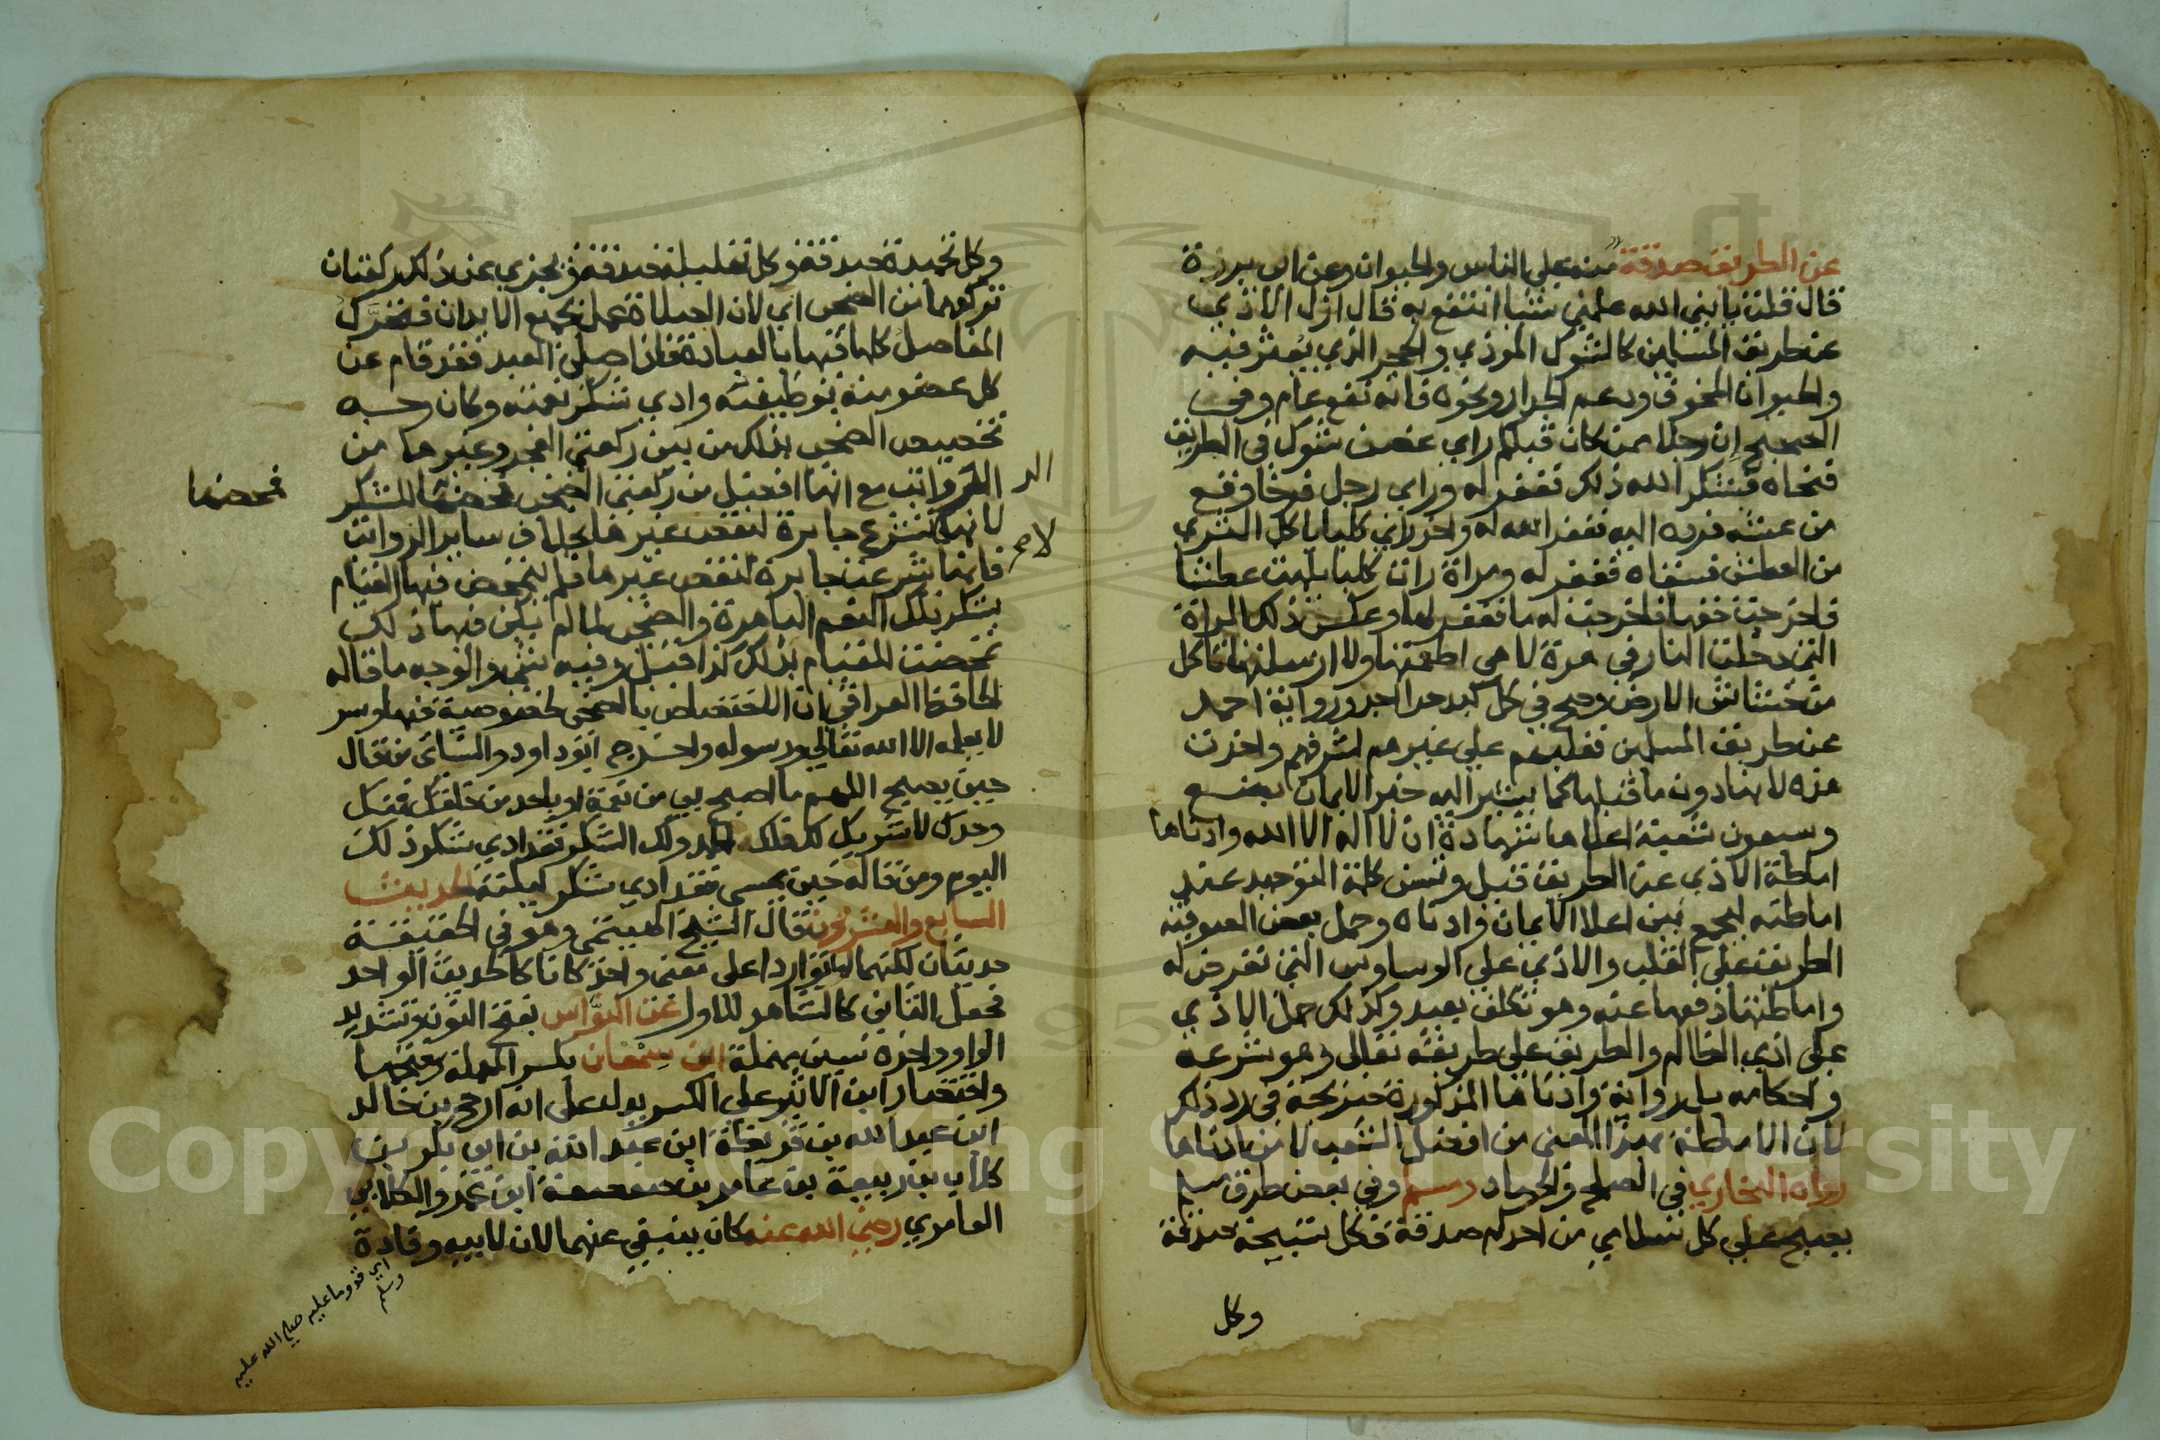 عن الطريق صدقة منه علي الناس والحيوان وعن ابي برزة
قال قلت يا نبي الله علمني شيئا انتفع به قال ازل الاذي
عن طريق المسلمين كالشوك الموذي والحجر الذي يعثر فيه
والحيوان المخوف وردم الجدار ونحوه فانه نفع عام وفي
الصحيح ان رجلا ممن كان قبلكم راي غصن شوك في الطريق
فنحاه فشكر الله ذلك فغفر له وراي رجل فرخا وقع
من عشه فرده اليه فغفر الله له واخر راي كلبا ياكل الثري
من العطش فسقاه فغفر له ومراة رات كلبا يلهث عطشا
فاخرجت خفها فاخرجت له ما فغفر لها وعكس ذلك المراة
التي دخلت النار في هرة لا هي اطعمتها ولا ارسلتها تاكل
من خشاش الارض وصح في كل كبد حرا اجر ورواية احمد
عن طريق المسلمين فغلبهم علي غيرهم لشرفهم واخرت
هذه لانها دون ما قبلها كما يشير اليه خبر الايمان بضع
وسبعون شعبة اعلاها شهادة ان لا اله الا الله وادناها
اماطة الاذي عن الطريق قيل وتسن كلمة التوحيد عند
اماطته ليجمع بين اعلا الايمان وادناه وحمل بعض الصوفية
الطريق علي القلب والاذي علي الوساوس التي تعرض له
واماطتها دفعها عنه وهو تكلف بعيد وكذلك حمل الاذي
علي اذي الظالم والطريق علي طريقه تعالي وهو شرعه
واحكامه بل رواية وادناها المذكورة صريحة في رد ذلك
لان الاماطة بهذا المعني من افضل الشعب لا من ادناها
رواه البخاري في الصلح والجهاد ومسلم وفي بعض طرق مسلم
يصبح علي كل سلامي من احدكم صدقة فكل تسبيحة صدقة
وكل
وكل تحميدة صدقة وكل تهليلة صدقة ويجزي عن ذلك ركعتان
تركعهما من الضحي اي لان الصلاة عمل بجميع الابدان فتتحرك
المفاصل كلها فيها بالعبادة فاذا صلي العبد فقد قام عن
كل عضو منه بوظيفته وادي شكر نعمته وكان وجه
تخصيص الضحي بذلك من بين ركعتي الفجر وغيرها من
الرواتب مع انها افضل من ركعتي الضحي تمحضها للشكر
لانها لم تشرع جابرة لنقص غيرها بخلاف ساير الرواتب
فانها شرعت جابرة لنقص غيرها فلم يتمحض فيها القيام
بشكر تلك النعم الباهرة والضحي لما لم يكن فيها ذلك
تمحضت للقيام بذلك كذا قيل وفيه شي والوجه ما قاله
الحافظ العراقي ان الاختصاص بالضحي لخصوصية فيها وسر
لا يعلمه الا الله تعالي ورسوله واخرج ابو داود والنساي من قال
حين يصبح اللهم ما اصبح بي من نعمة او باحد من خلقك فمنك
وحدك لا شريك لك فلك الحمد ولك الشكر فقد ادي شكر ذلك
اليوم ومن قاله حين يمسي فقد ادي شكر ليلته الحديث
السابع والعشرون قال الشيخ الهيتمي وهو في الحقيقة
حديثان لكنهما لما تواردا علي معني واحد كانا كالحديث الواحد
فجعل الثاني كالشاهد للاول عن النواس بفتح النون وتشديد
الواو واخره سين مهملة ابن سمعان بكسر المهملة وفتحها
واختصار ابن الاثير علي الكسر يدل علي انه ارجح بن خالد
ابن عبد الله بن قريظة ابن عبد الله بن ابي بكر بن
كلاب بن ربيعة بن عامر بن صعصعة ابن عمرو الكلابي
العامري رضي الله عنه كان ينبغي عنهما لان لابيه وفادة
الر
لم
تمحضها
اي قدوما عليه صلي الله عليه
وسلم
Copyright © King Saud University